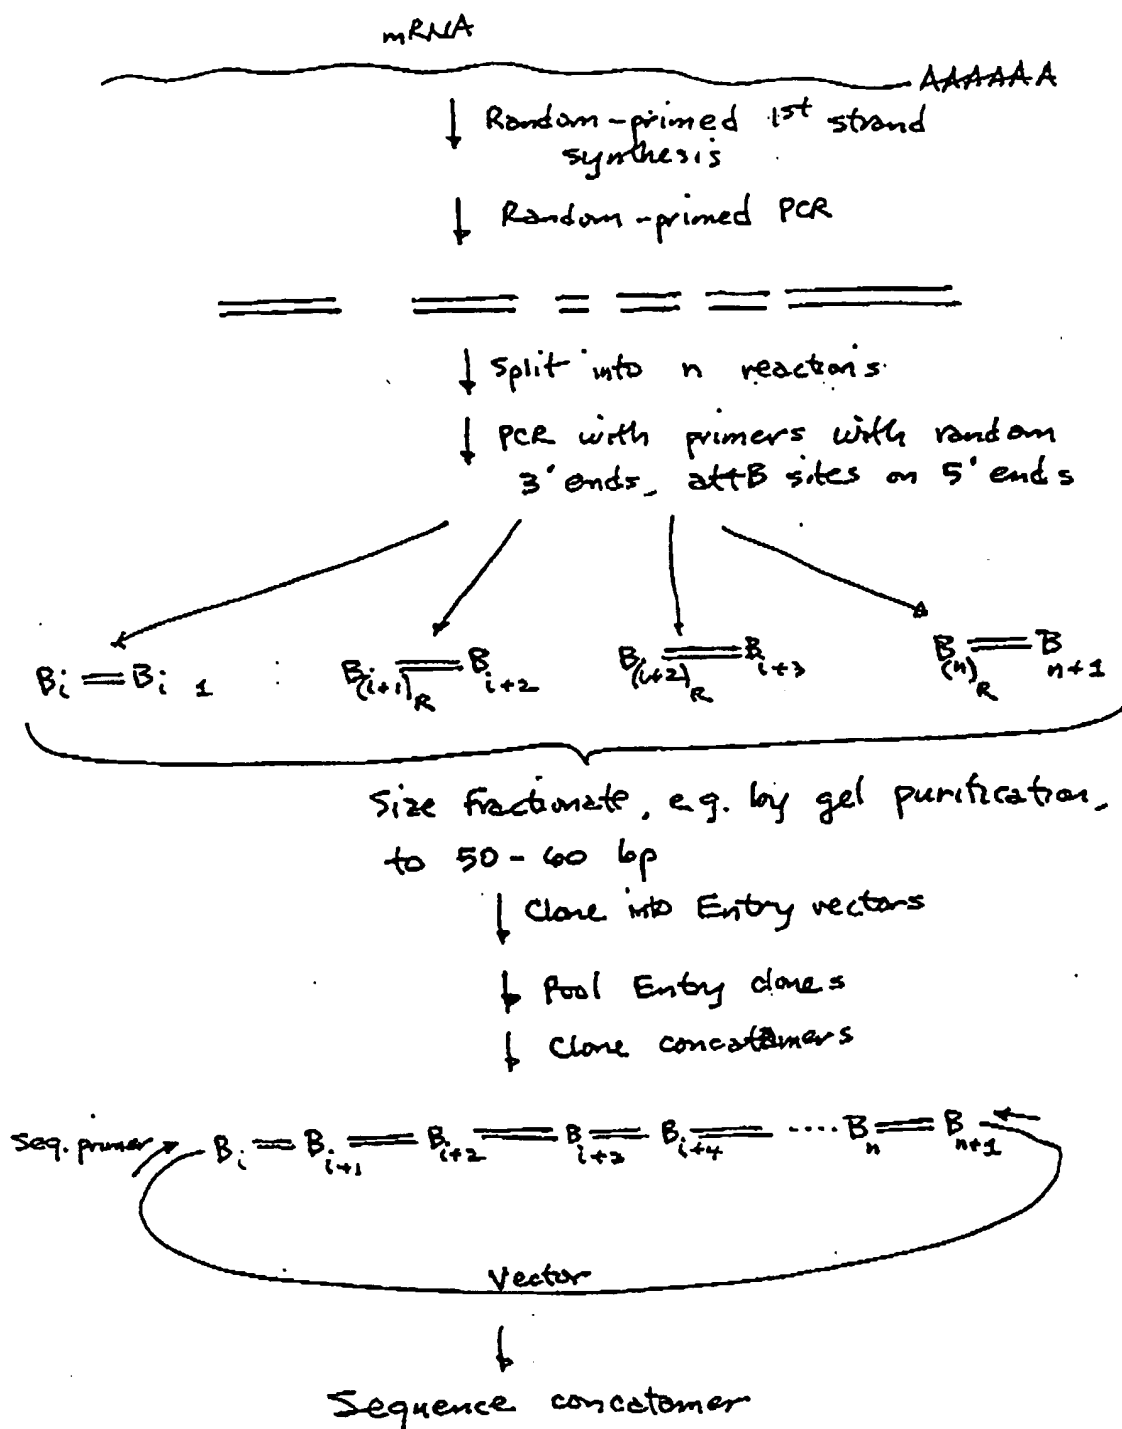 mRNA
AAAAAA
Random-primed 1st strand
synthesis
Random-primed PCR
Split into n reactions
PCR with primers with random
3' ends, attB sites on 5' ends
Bi = Bi 1 B(i+1)R = Bi+2 B(i+2)R = Bi+3 B(n)R = Bn+1
Size fractionate, e.g. by gel purification,
to 50-60 bp
Clone into Entry vectors
Pool Entry clones
Clone concatamers
Seq. primer Bi = Bi+1 = Bi+2 = Bi+3 = Bi+4 = .... Bn = Bn+1
Vector
Sequence concatomer